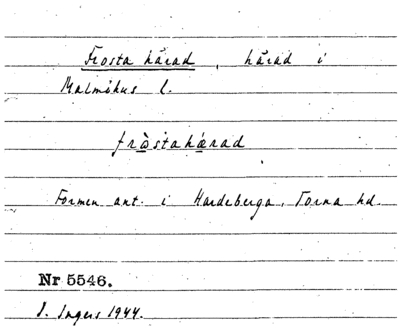 Frosta härad, härad i
Malmöhus l.
fròstahǽrad
Formen ant. i Hardeberga, Torna hd.
Nr 5546.
I. Ingers 1944.